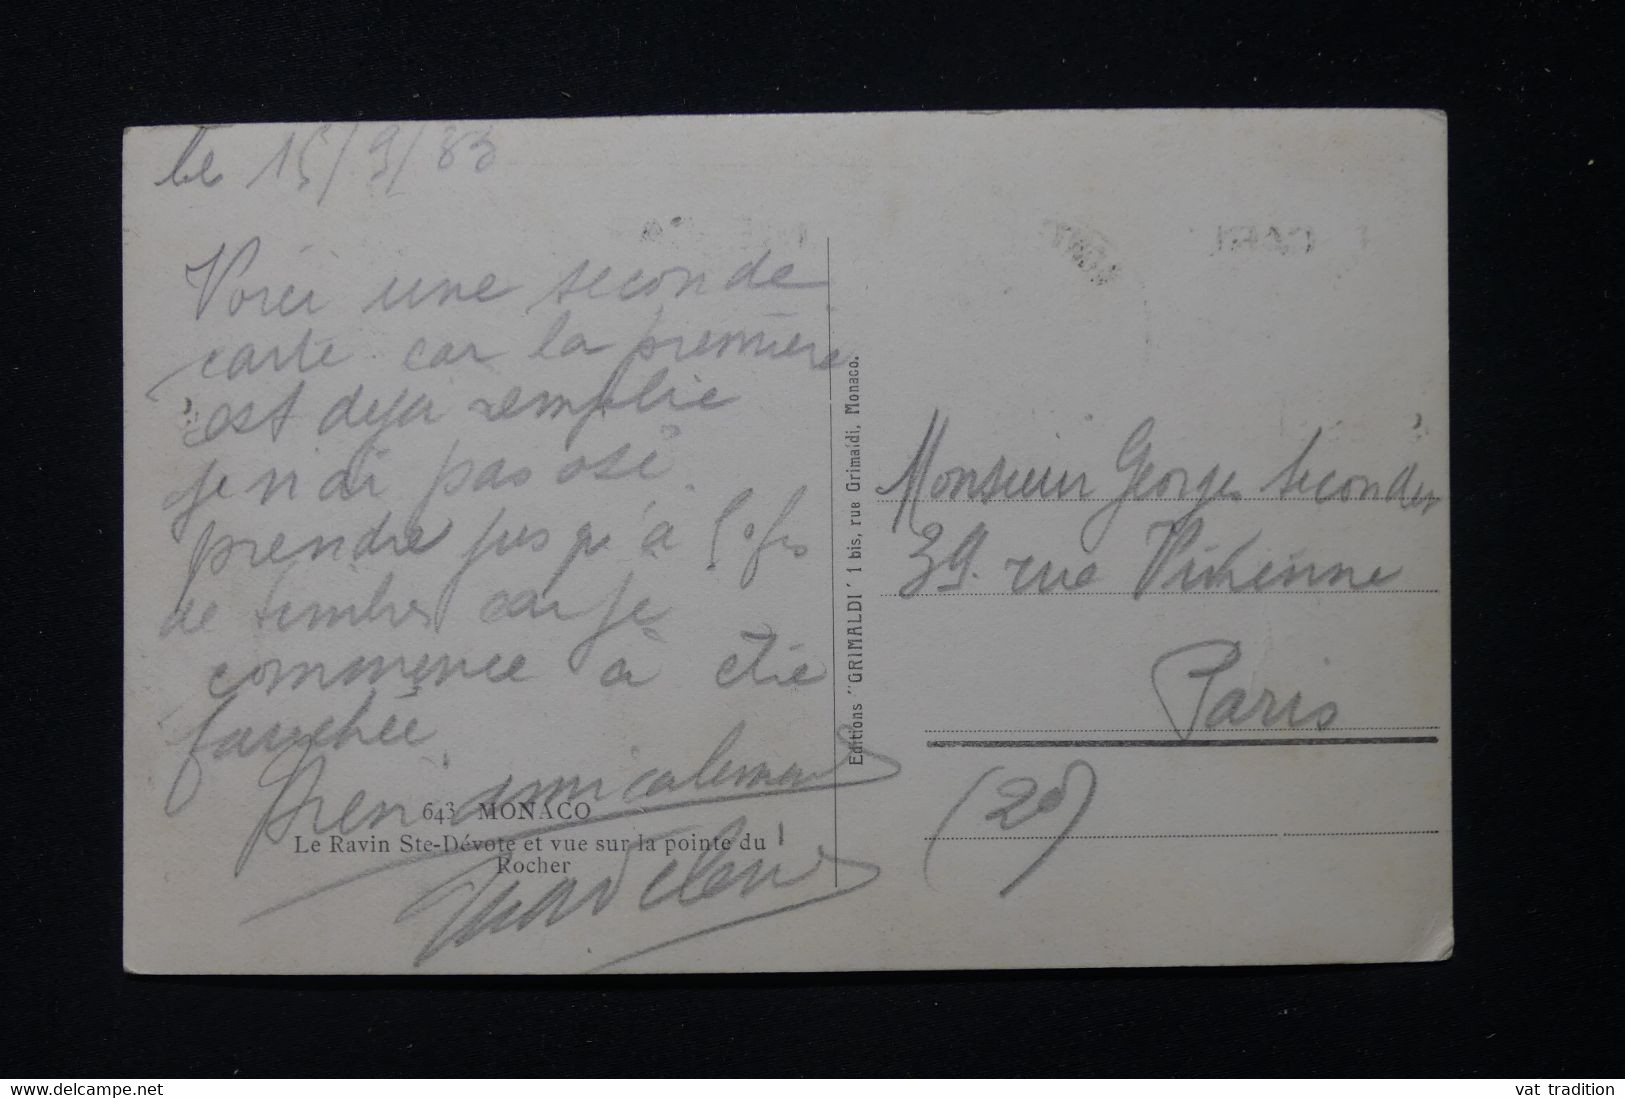 le 15/9/33
Voici une seconde
carte car la première
est deja remplie
je n'ai pas osé
prendre jusqu'à
de timbres car je
commence à être
fauchée
amicalement
643 MONACO
Le Ravin Ste-Dévote et vue sur la pointe du
Rocher
Editions "GRIMALDI" 1 bis, rue Grimaldi, Monaco.
Monsieur Georges
39. rue Vivienne
Paris
(20)
delcampe.net
vat tradition